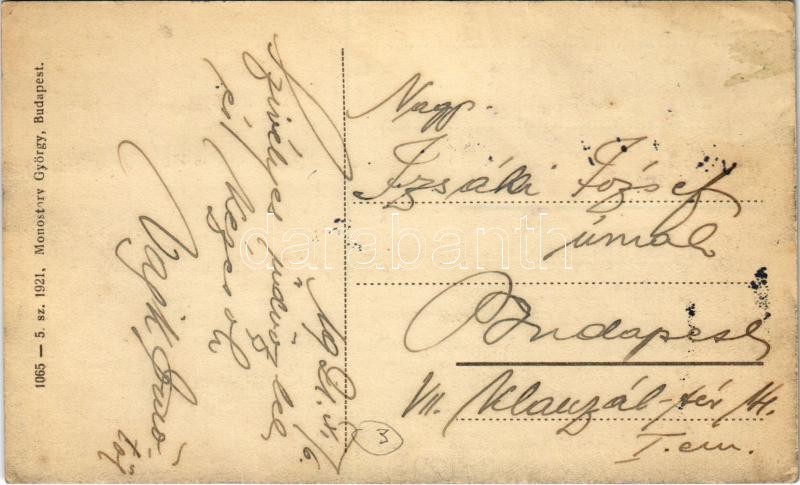 1065 — 5. sz. 1921, Monostory György, Budapest.
Szivélyes üdvözlet
és kézcsók
Nagys.
Izsáki József
úrnak
Budapest
VII. Klauzál-tér 14.
I. em.
darabanth